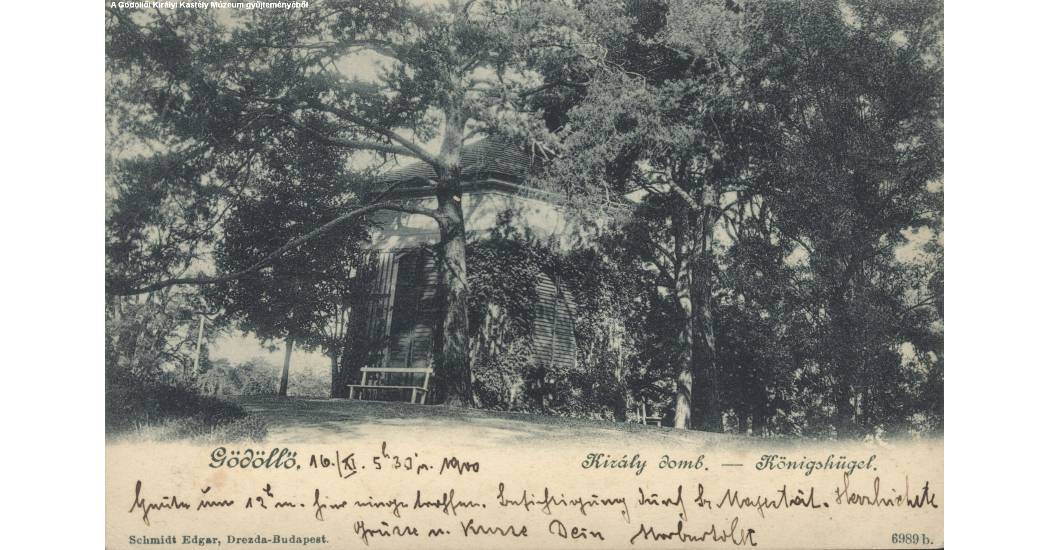 A Gödöllői Királyi Kastély Múzeum gyűjteményéből
Gödöllő. 16./XI. 5h 30'n. 1900
Király domb. — Königshügel.
Heute um 12h m. hier eingetroffen. Besichtigung durch S. Majestät. Herzlichste
Grüsse u. Küsse Dein
Schmidt Edgar, Drezda-Budapest.
6989 b.